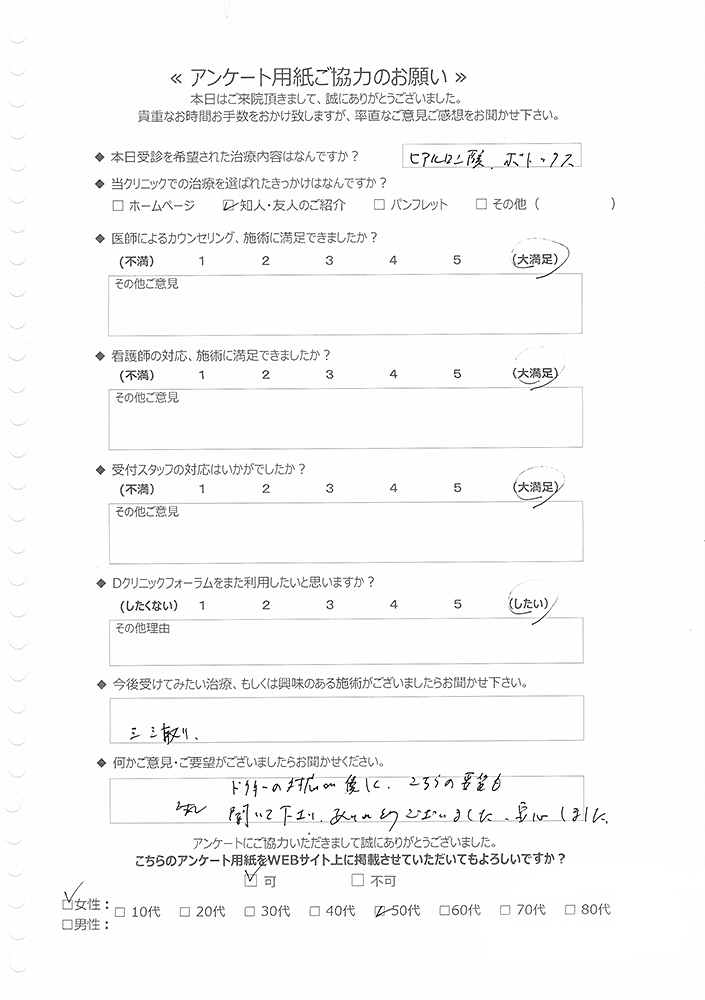 ≪ アンケート用紙ご協力のお願い ≫
本日はご来院頂きまして、誠にありがとうございました。
貴重なお時間お手数をおかけ致しますが、率直なご意見ご感想をお聞かせ下さい。
◆ 本日受診を希望された治療内容はなんですか？ ヒアルロン酸、ボトックス
◆ 当クリニックでの治療を選ばれたきっかけはなんですか？
□ ホームページ ☑ 知人・友人のご紹介 □ パンフレット □ その他（ ）
◆ 医師によるカウンセリング、施術に満足できましたか？
(不満) 1 2 3 4 5 (大満足)
その他ご意見
◆ 看護師の対応、施術に満足できましたか？
(不満) 1 2 3 4 5 (大満足)
その他ご意見
◆ 受付スタッフの対応はいかがでしたか？
(不満) 1 2 3 4 5 (大満足)
その他ご意見
◆ Dクリニックフォーラムをまた利用したいと思いますか？
(したくない) 1 2 3 4 5 (したい)
その他理由
◆ 今後受けてみたい治療、もしくは興味のある施術がございましたらお聞かせ下さい。
シミ取り、
◆ 何かご意見・ご要望がございましたらお聞かせください。
ドクターの対応 こちらの要望も
聞いて下さり、ありがとうございました。安心しました。
アンケートにご協力いただきまして誠にありがとうございました。
こちらのアンケート用紙をWEBサイト上に掲載させていただいてもよろしいですか？
☑ 可 □ 不可
☑女性： □ 10代 □ 20代 □ 30代 □ 40代 ☑50代 □60代 □ 70代 □ 80代
□男性：